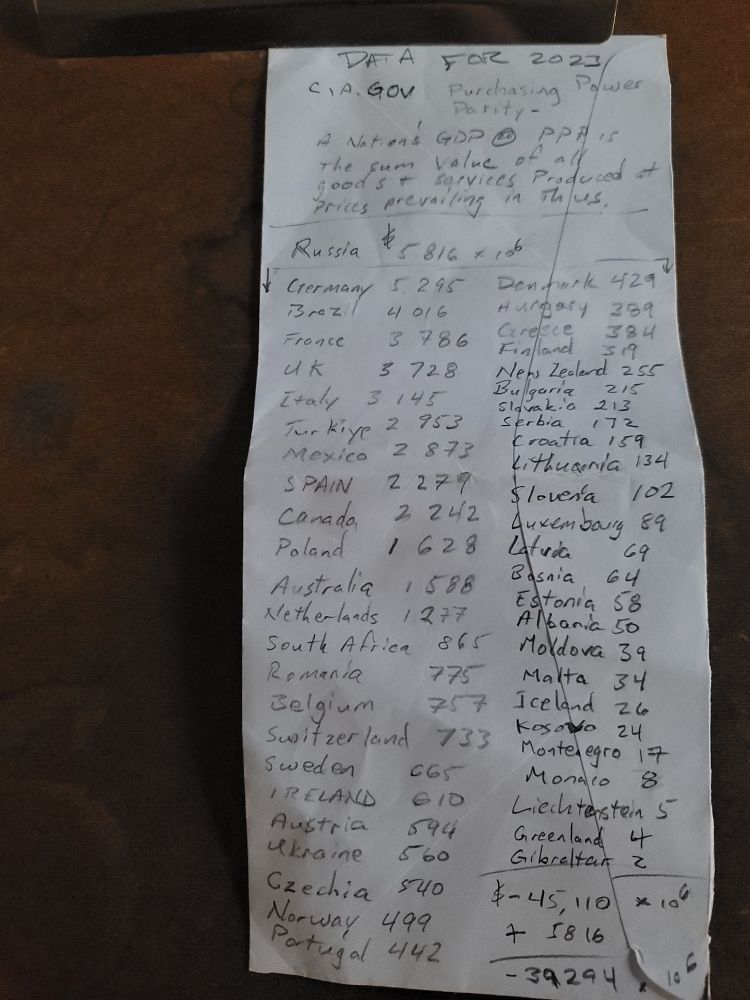 DATA FOR 2023
C.I.A. GOV Purchasing Power
Parity -
A Nation's GDP @ PPP is
the sum value of all
goods + services Produced at
prices prevailing in Th US.
Russia $5 816 x 10⁶
Germany 5 295
Brazil 4 016
France 3 786
UK 3 728
Italy 3 145
Turkiye 2 953
Mexico 2 873
SPAIN 2 279
Canada 2 242
Poland 1 628
Australia 1 588
Netherlands 1 277
South Africa 865
Romania 775
Belgium 757
Switzerland 733
Sweden 665
IRELAND 610
Austria 594
Ukraine 560
Czechia 540
Norway 499
Portugal 442
Denmark 429
Hungary 389
Greece 384
Finland 319
New Zealand 255
Bulgaria 215
Slovakia 213
Serbia 172
Croatia 159
Lithuania 134
Slovenia 102
Luxembourg 89
Latvia 69
Bosnia 64
Estonia 58
Albania 50
Moldova 39
Malta 34
Iceland 26
Kosovo 24
Montenegro 17
Monaco 8
Liechtenstein 5
Greenland 4
Gibraltar 2
$-45,110 x 10⁶
+ 5816
-39294 x 10⁶